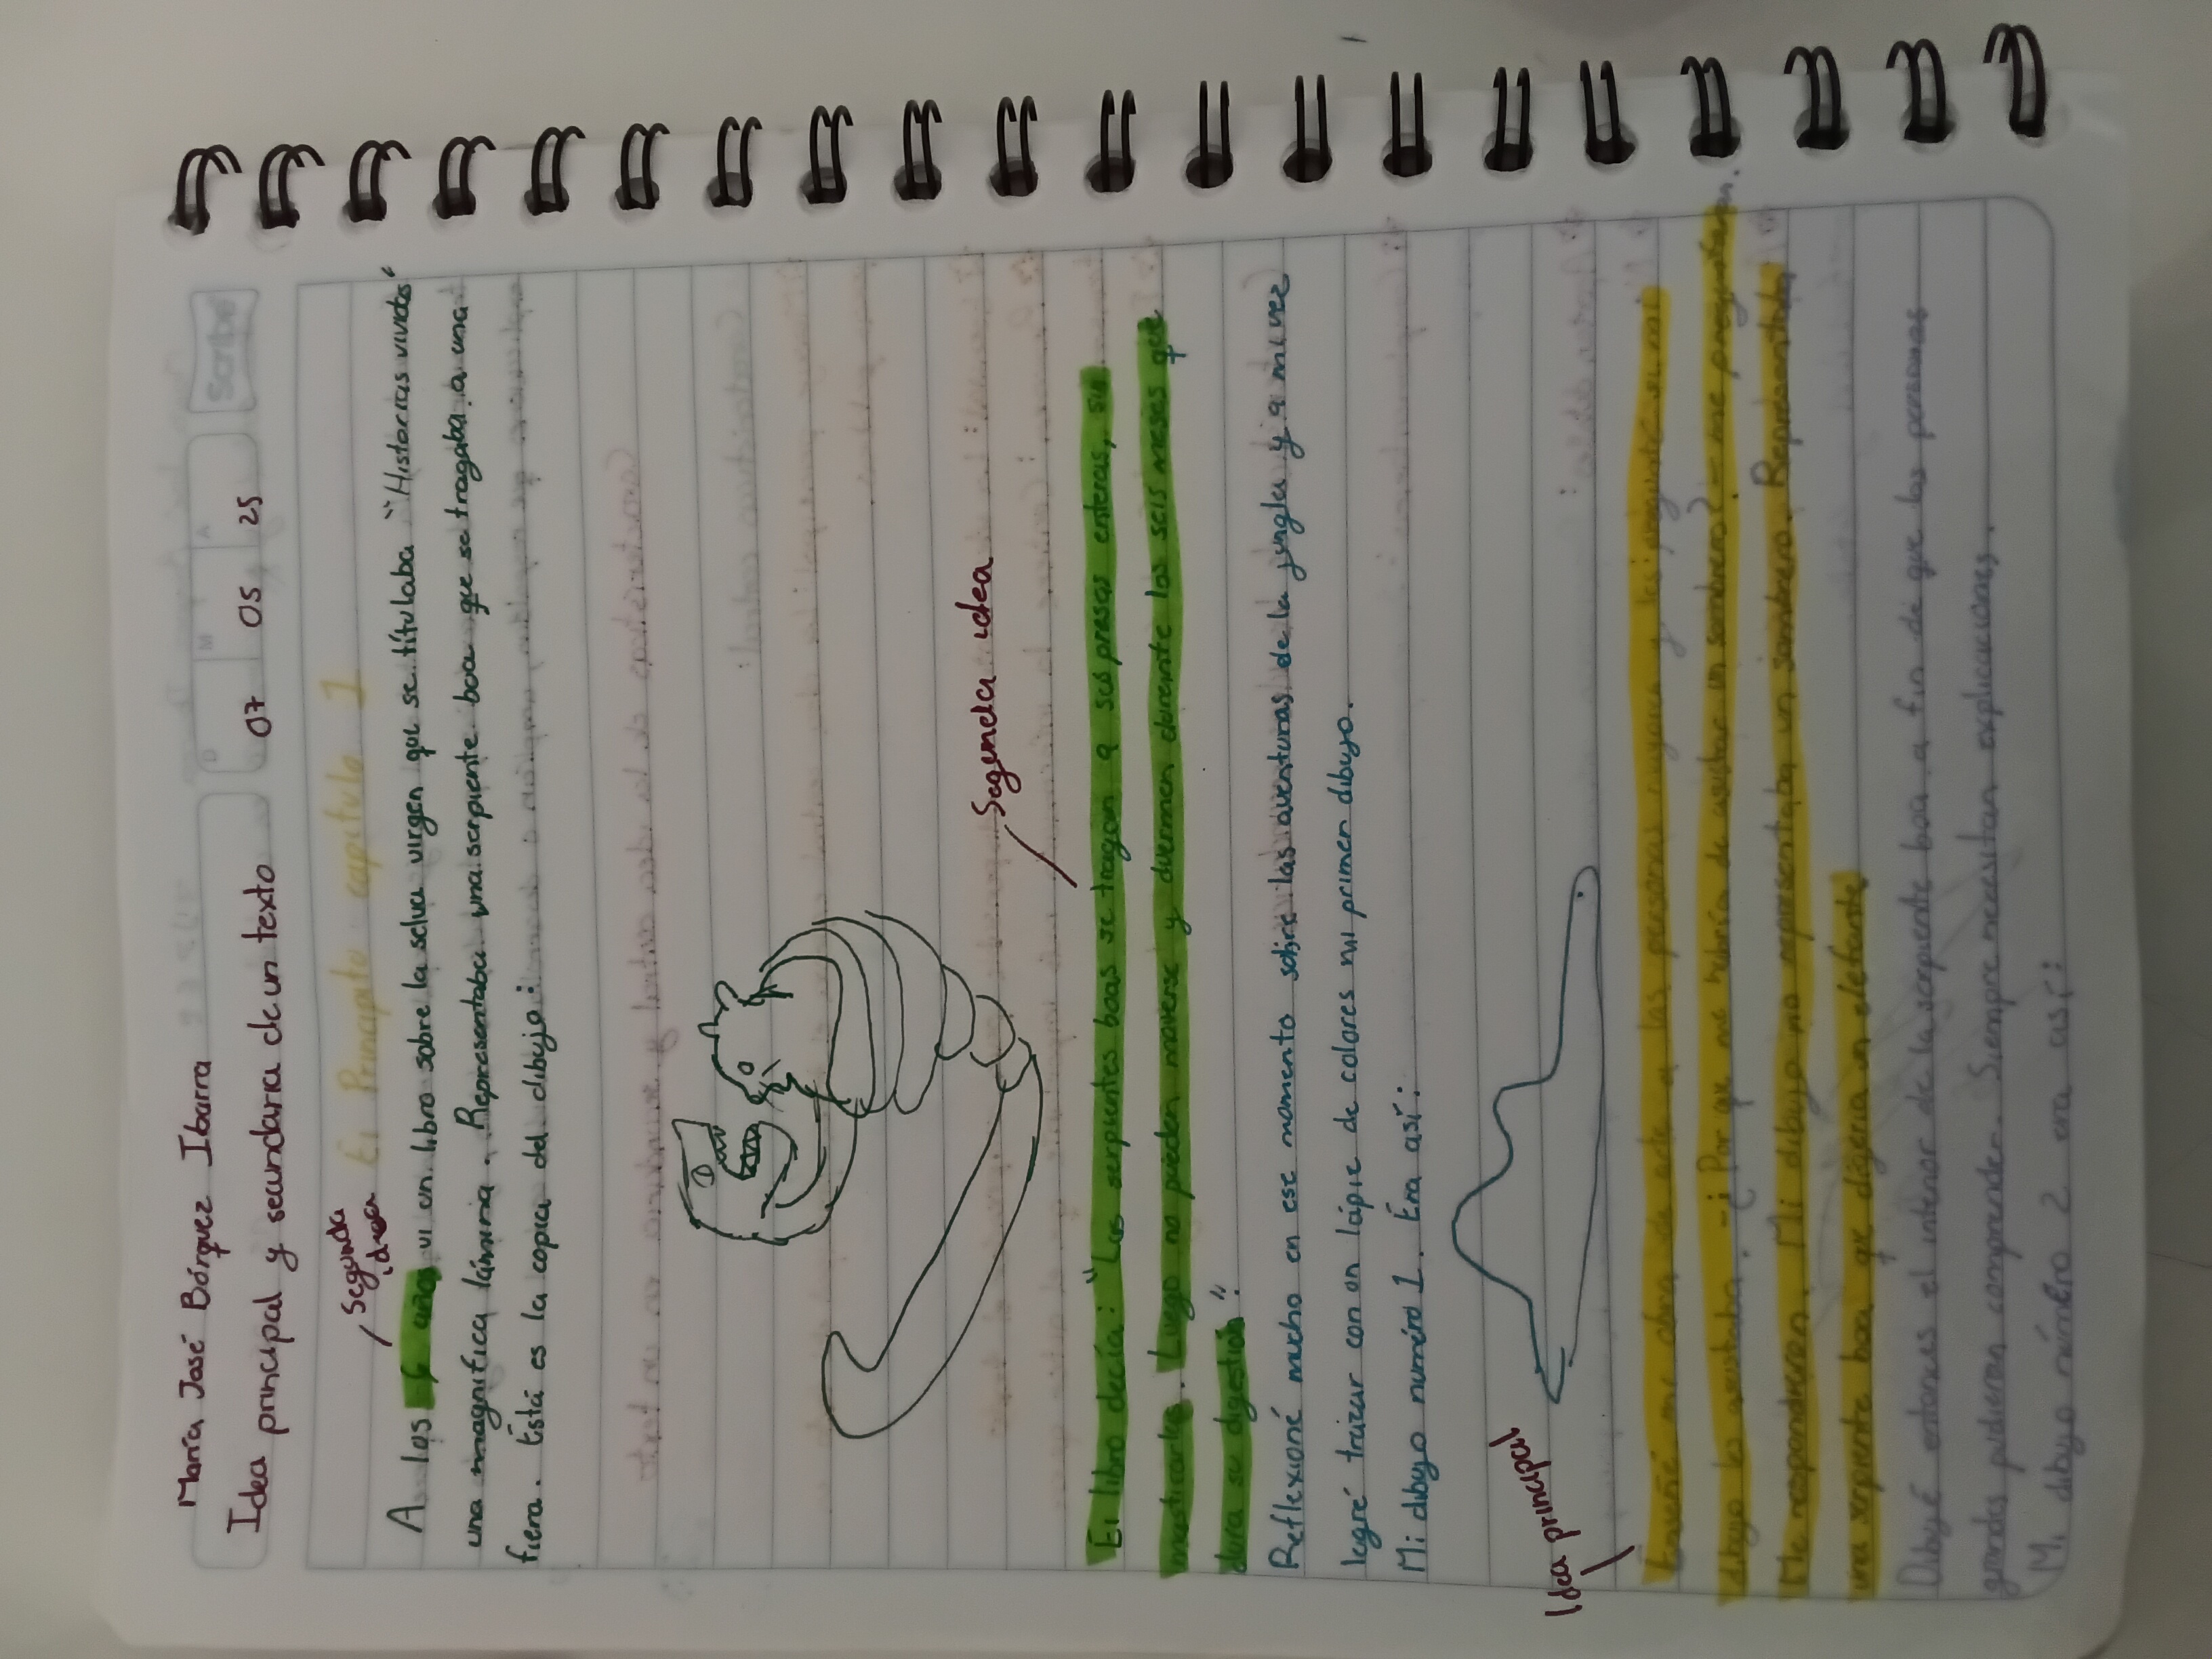 Scribe
D M A
María José Bórquez Ibarra
07 05 25
Idea principal y secundaria de un texto
Segunda
idea
El Principito capítulo 1
A las 6 años vi un libro sobre la selva virgen que se títulaba "Historias vividas"
una magnifica lámina. Representaba una serpiente boa que se tragaba a una
fiera. Está es la copia del dibujo:
Segenda idea
El libro decía: "Las serpientes boas se tragan a sus presas enteras, sin
masticarlas. Luego no pueden moverse y duermen durante los seis meses que
dura su digestión".
Reflexioné mucho en ese momento sobre las aventuras de la jungla y a mi vez
logré trazar con un lápiz de colores mi primer dibujo.
Mi dibujo numéro 1. Era así:
Idea principal
Enseñé mi obra de arte a las personas mayores y les pregunté si mi
dibujo los asustaba. -¿Por que me habría de asustar un sombrero? - me preguntaron.
Me respondieron. Mi dibujo no representaba un sombrero. Representaba
una serpiente boa que digeria un elefante
Dibujé entonces el interior de la serpiente boa a fin de que las personas
grandes pudieran comprender. Siempre necesitan explicaciones.
Mi dibujo número 2 era así: